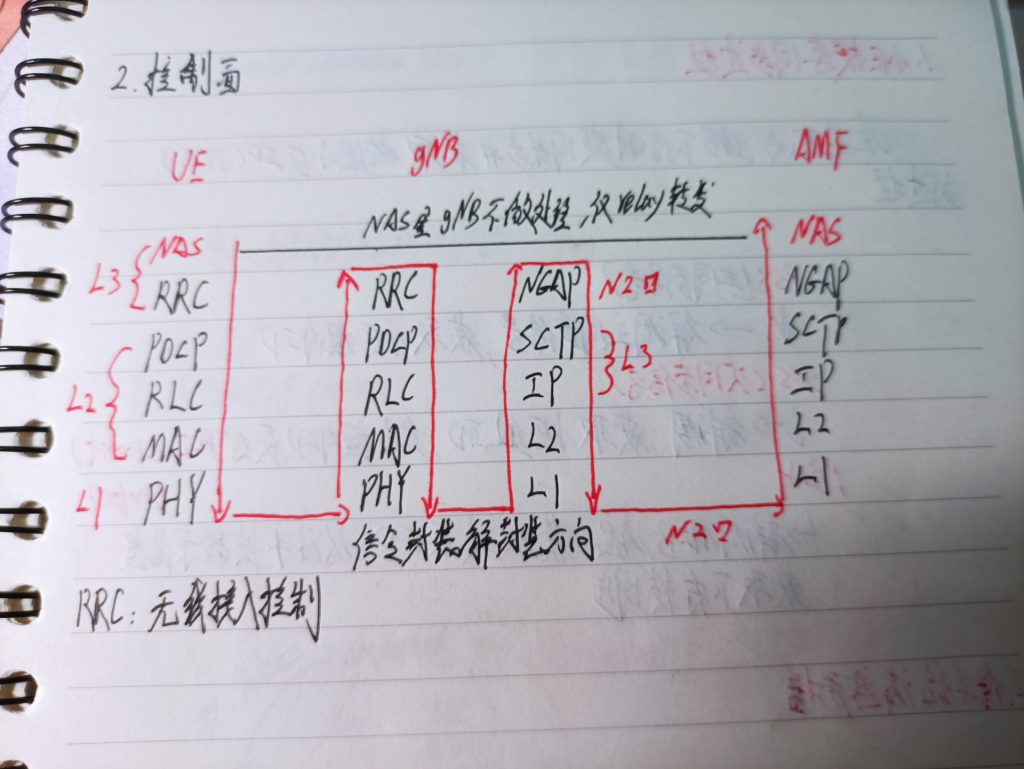 2. 控制面
UE gNB AMF
NAS至gNB不做处理，仅relay转发
L3 NAS NAS
RRC RRC NGAP N2口 NGAP
PDCP PDCP SCTP L3 SCTP
L2 RLC RLC IP IP
MAC MAC L2 L2
L1 PHY PHY L1 L1
信令封装/解封装方向 N2口
RRC：无线接入控制